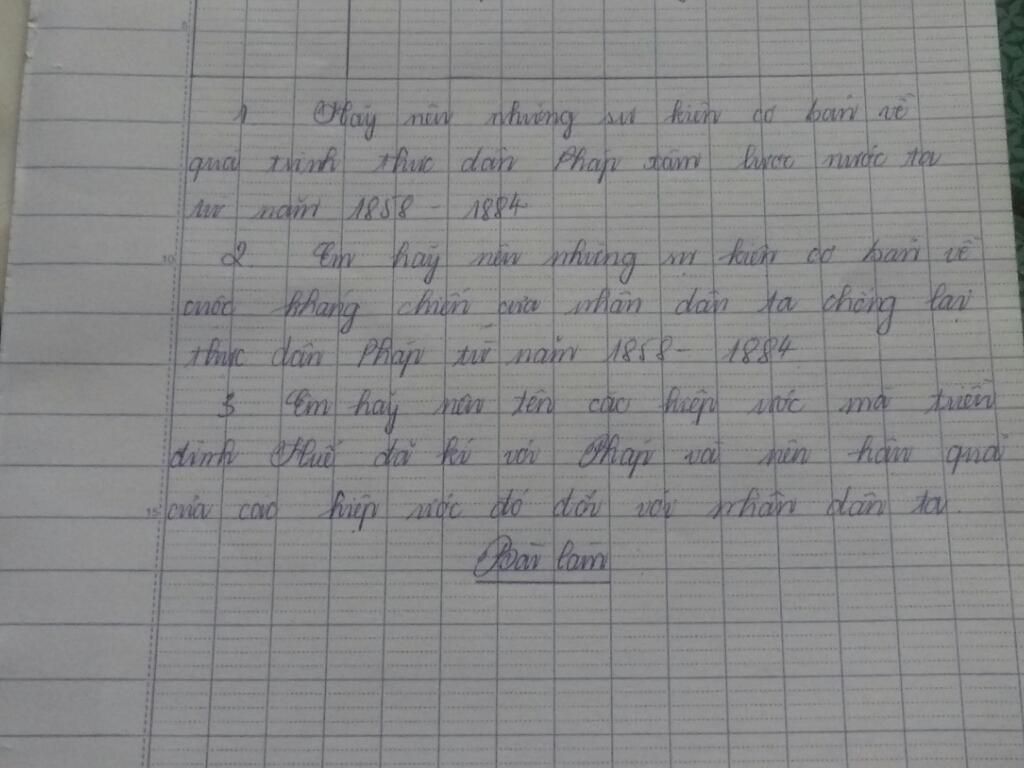 1. Hãy nêu những sự kiện cơ bản về
quá trình thực dân Pháp xâm lược nước ta
từ năm 1858 - 1884
2. Em hãy nêu những sự kiện cơ bản về
cuộc kháng chiến của nhân dân ta chống lại
thực dân Pháp từ năm 1858 - 1884
3 Em hãy nêu tên các hiệp ước mà triều
đình Huế đã kí với Pháp và nêu hậu quả
của các hiệp ước đó đối với nhân dân ta.
Bài làm
5
10
15